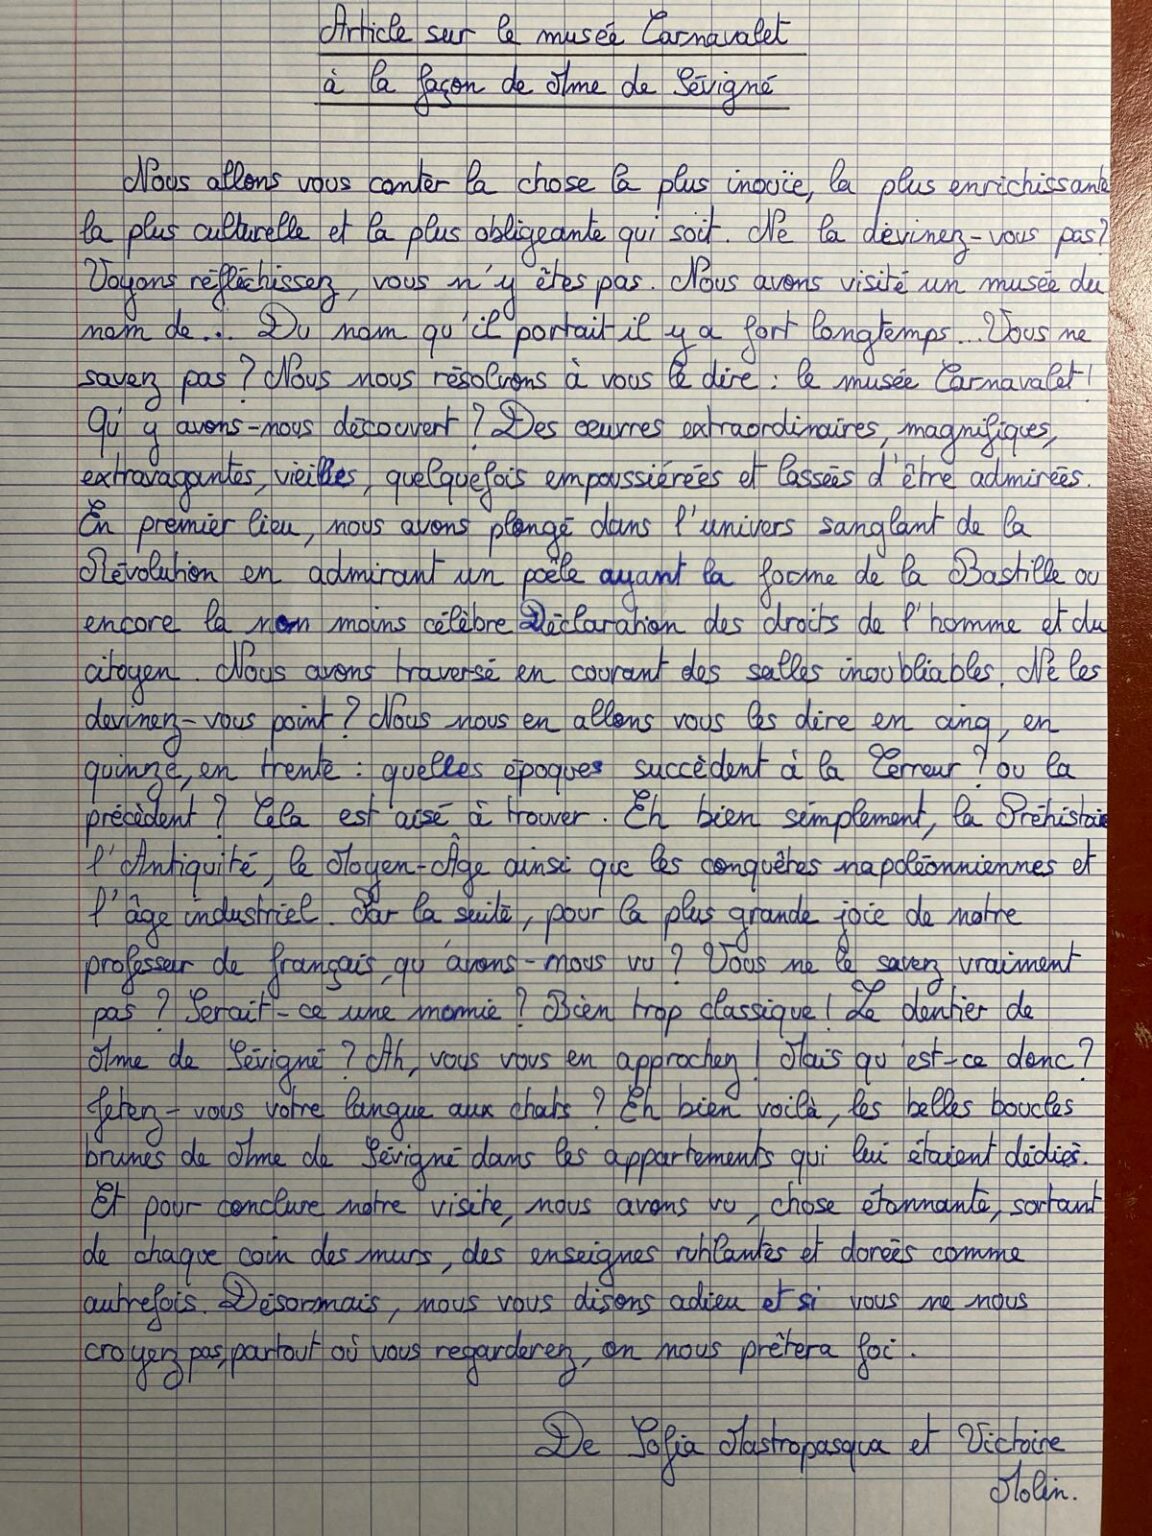 Article sur le musée Carnavalet
à la façon de Mme de Sévigné
Nous allons vous conter la chose la plus inouïe, la plus enrichissante
la plus culturelle et la plus obligeante qui soit. Ne la devinez-vous pas?
Voyons réfléchissez, vous n'y êtes pas. Nous avons visité un musée du
nom de... Du nom qu'il portait il y a fort longtemps... Vous ne
savez pas? Nous nous résolvons à vous le dire : le musée Carnavalet!
Qu'y avons-nous découvert? Des œuvres extraordinaires, magnifiques,
extravagantes, vieilles, quelquefois empoussiérées et lassées d'être admirées.
En premier lieu, nous avons plongé dans l'univers sanglant de la
Révolution en admirant un poêle ayant la forme de la Bastille ou
encore la non moins célèbre Déclaration des droits de l'homme et du
citoyen. Nous avons traversé en courant des salles inoubliables. Ne les
devinez-vous point? Nous nous en allons vous les dire en cinq, en
quinze, en trente : quelles époques succèdent à la Terreur? ou la
précèdent? Cela est aisé à trouver. Eh bien simplement, la Préhistoire
l'Antiquité, le Moyen-Âge ainsi que les conquêtes napoléonniennes et
l'âge industriel. Par la suite, pour la plus grande joie de notre
professeur de français, qu'avons-nous vu? Vous ne le savez vraiment
pas? Serait-ce une momie? Bien trop classique! Le dentier de
Mme de Sévigné? Ah, vous vous en approchez! Mais qu'est-ce donc?
Jetez-vous votre langue aux chats? Eh bien voilà, les belles boucles
brunes de Mme de Sévigné dans les appartements qui lui étaient dédiés.
Et pour conclure notre visite, nous avons vu, chose étonnante, sortant
de chaque coin des murs, des enseignes rutilantes et dorées comme
autrefois. Désormais, nous vous disons adieu et si vous ne nous
croyez pas, partout où vous regarderez, on nous prêtera foi.
De Sofia Mastropasqua et Victoire
Molin.